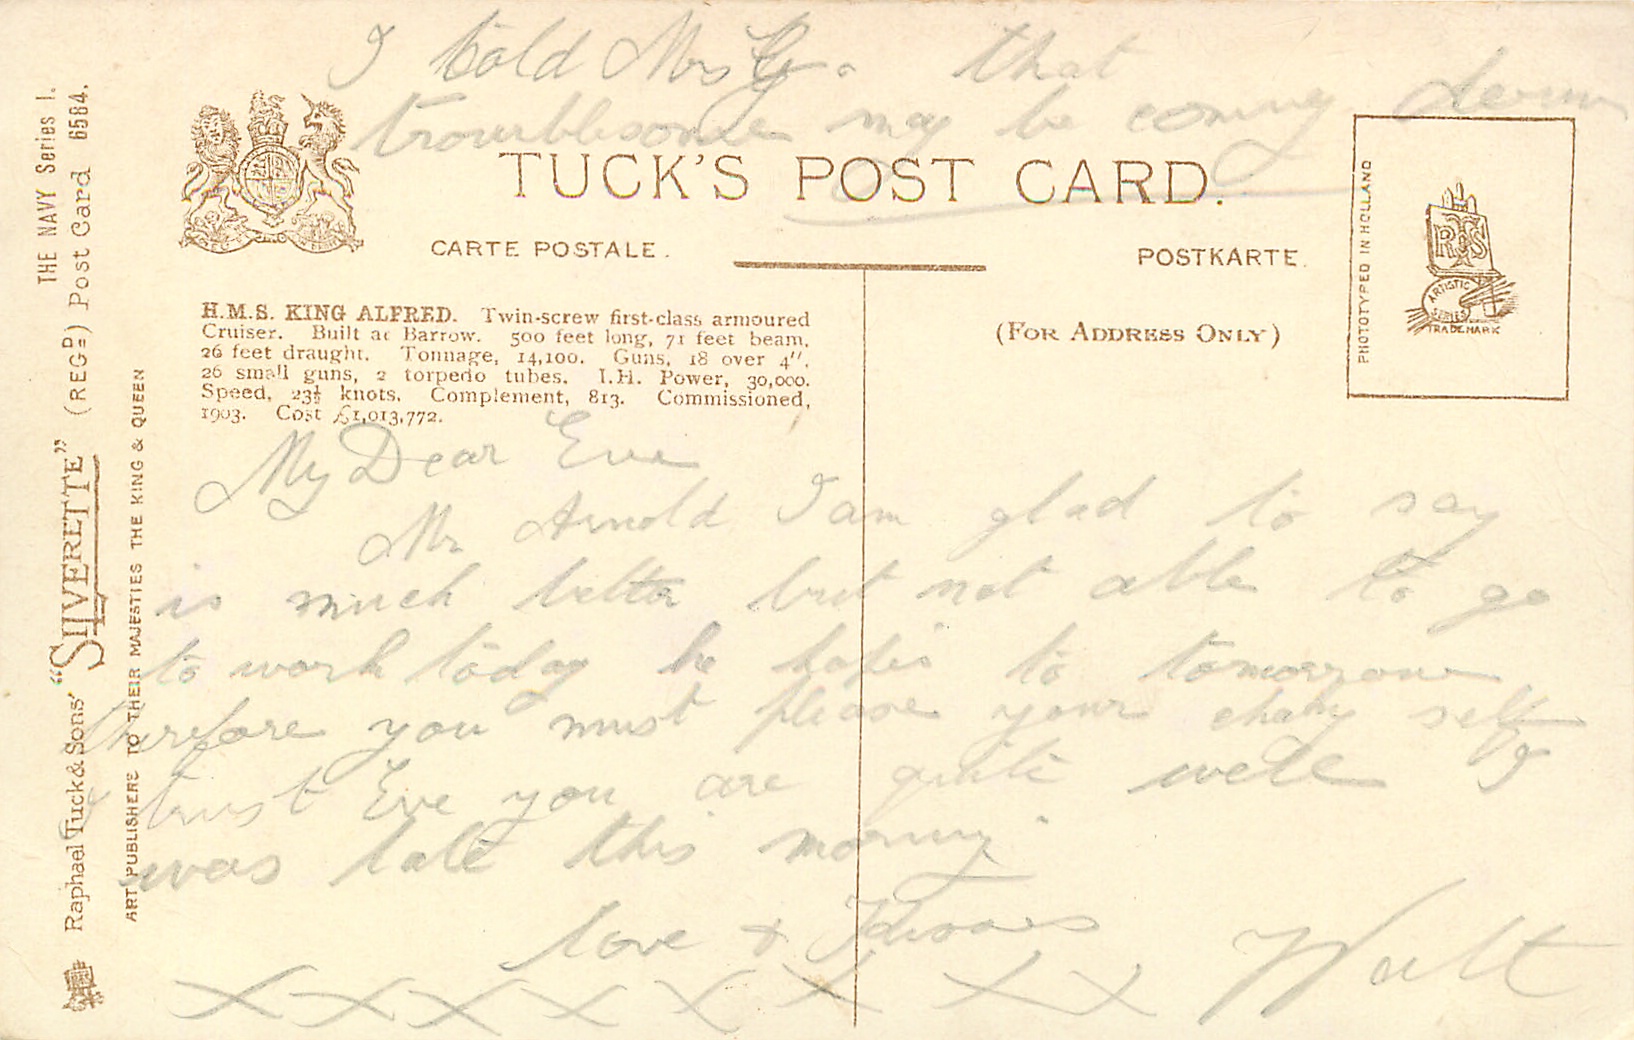 I told Mrs G. that
troublesome may be coming down
TUCK'S POST CARD.
CARTE POSTALE.
POSTKARTE.
(FOR ADDRESS ONLY)
PHOTOTYPED IN HOLLAND
RTS
ARTISTIC SERIES
TRADE MARK
THE NAVY Series I.
Raphael Tuck & Sons' "SILVERETTE" (REGD) Post Card 6584.
ART PUBLISHERS TO THEIR MAJESTIES THE KING & QUEEN
H.M.S. KING ALFRED. Twin-screw first-class armoured
Cruiser. Built at Barrow. 500 feet long, 71 feet beam,
26 feet draught. Tonnage, 14,100. Guns, 18 over 4".
26 small guns, 2 torpedo tubes. I.H. Power, 30,000.
Speed, 23½ knots. Complement, 813. Commissioned,
1903. Cost £1,013,772.
My Dear Eve
Mr Arnold I am glad to say
is much better but not able to go
to work today he hopes to tomorrow
therefore you must please your self
I trust Eve you are quite well I
was late this morning.
love & Kisses Walt
X X X X X X X X